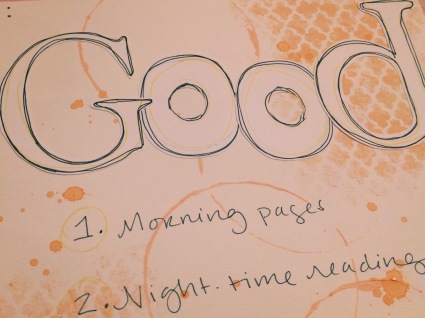 Good
1. Morning pages
2. Night-time reading